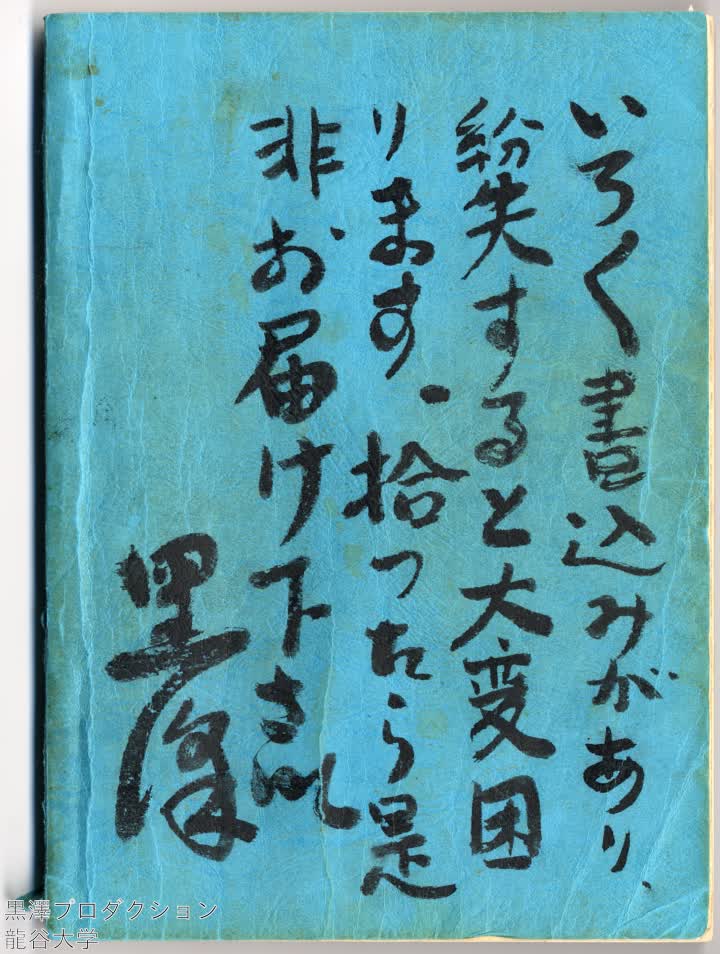 いろ〱書込みがあり、
紛失すると大変困
ります、拾ったら是
非お届け下さい
黒澤
黒澤プロダクション
龍谷大学